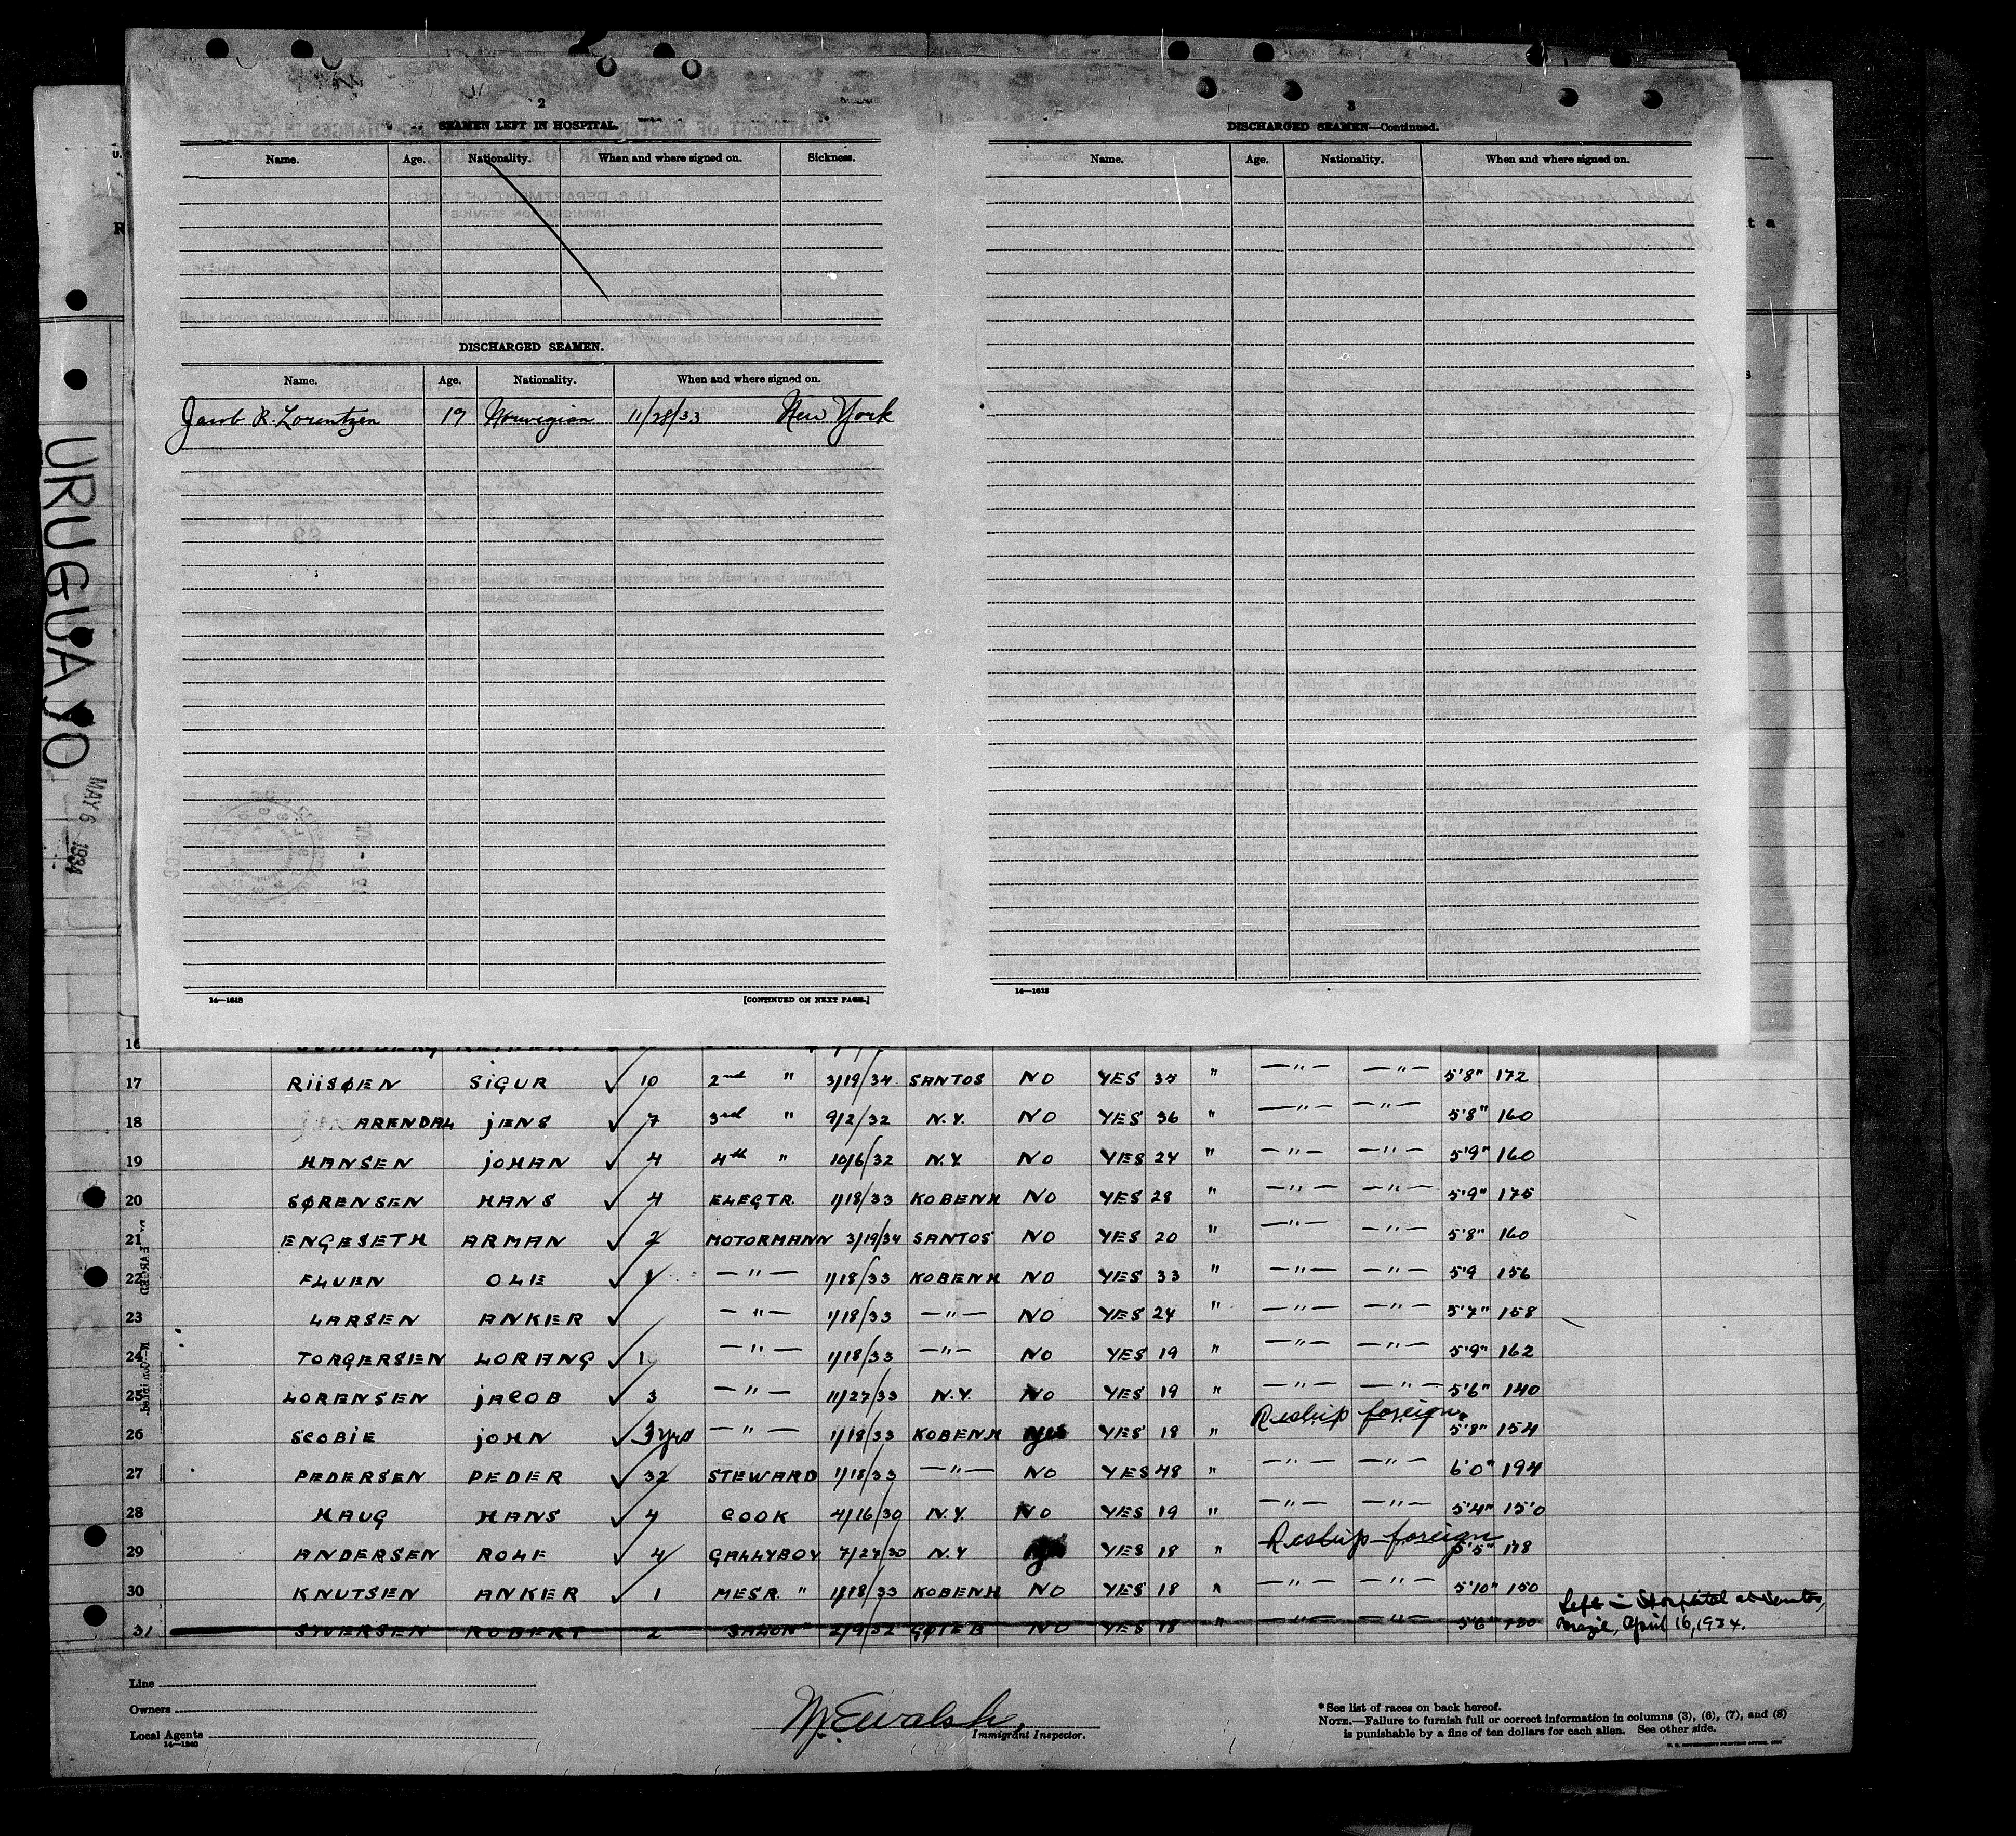 2
SEAMEN LEFT IN HOSPITAL.
Name. Age. Nationality. When and where signed on. Sickness.
DISCHARGED SEAMEN.
Name. Age. Nationality. When and where signed on.
Jacob R. Lorentzen 19 Norwegian 11/28/33 New York
14—1618 [CONTINUED ON NEXT PAGE.]
3
DISCHARGED SEAMEN—Continued.
Name. Age. Nationality. When and where signed on.
14—1618
URUGUAYO
MAY 6 1934
16
17 RIISØEN SIGUR ✓ 10 2nd " 3/19/34 SANTOS NO YES " —"— —"— 5'8" 172
18 ARENDAL JENS ✓ 7 3rd " 9/2/32 N.Y. NO YES 36 " —"— —"— 5'8" 160
19 HANSEN JOHAN ✓ 4 4th " 10/6/32 N.Y. NO YES 24 " —"— —"— 5'9" 160
20 SØRENSEN HANS ✓ 4 ELECTR. 1/18/33 KOBENH NO YES 28 " —"— —"— 5'9" 175
21 ENGESETH ARMAN ✓ 2 MOTORMANN 3/19/34 SANTOS NO YES 20 " —"— —"— 5'8" 160
22 FLUEN OLE ✓ 1 —"— 1/18/33 KOBENH NO YES 33 " —"— —"— 5'9 156
23 LARSEN ANKER ✓ —"— 1/18/33 —"— NO YES 24 " —"— —"— 5'7" 158
24 TORGERSEN LORANG ✓ 1 —"— 1/18/33 —"— NO YES 19 " —"— —"— 5'9" 162
25 LORENSEN JACOB ✓ 3 —"— 11/27/33 N.Y. NO YES 19 " —"— —"— 5'6" 140
26 SCOBIE JOHN ✓ 3 yrs —"— 1/18/33 KOBENH yes YES 18 " Reship foreign. 5'8" 154
27 PEDERSEN PEDER ✓ 32 STEWARD 1/18/33 —"— NO YES 48 " —"— —"— 6'0" 194
28 HAUG HANS ✓ 4 COOK 4/16/30 N.Y. NO YES 19 " —"— —"— 5'4" 150
29 ANDERSEN ROLF ✓ 4 GALLYBOY 7/27/30 N.Y yes YES 18 " Reship foreign 5'5" 118
30 KNUTSEN ANKER ✓ 1 MESR. " 1/18/33 KOBENH NO YES 18 " —"— —"— 5'10" 150
31 SYVERSEN ROBERT 2 SALON " 2/9/32 GØTEB NO YES 18 " —"— —"— 5'6" 130 Left in Hospital at Santos, Brazil, April 16, 1934.
Line
Owners
Local Agents
14—1240
M. E. Walsh,
Immigrant Inspector.
* See list of races on back hereof.
NOTE.—Failure to furnish full or correct information in columns (3), (6), (7), and (8)
is punishable by a fine of ten dollars for each alien. See other side.
U. S. GOVERNMENT PRINTING OFFICE